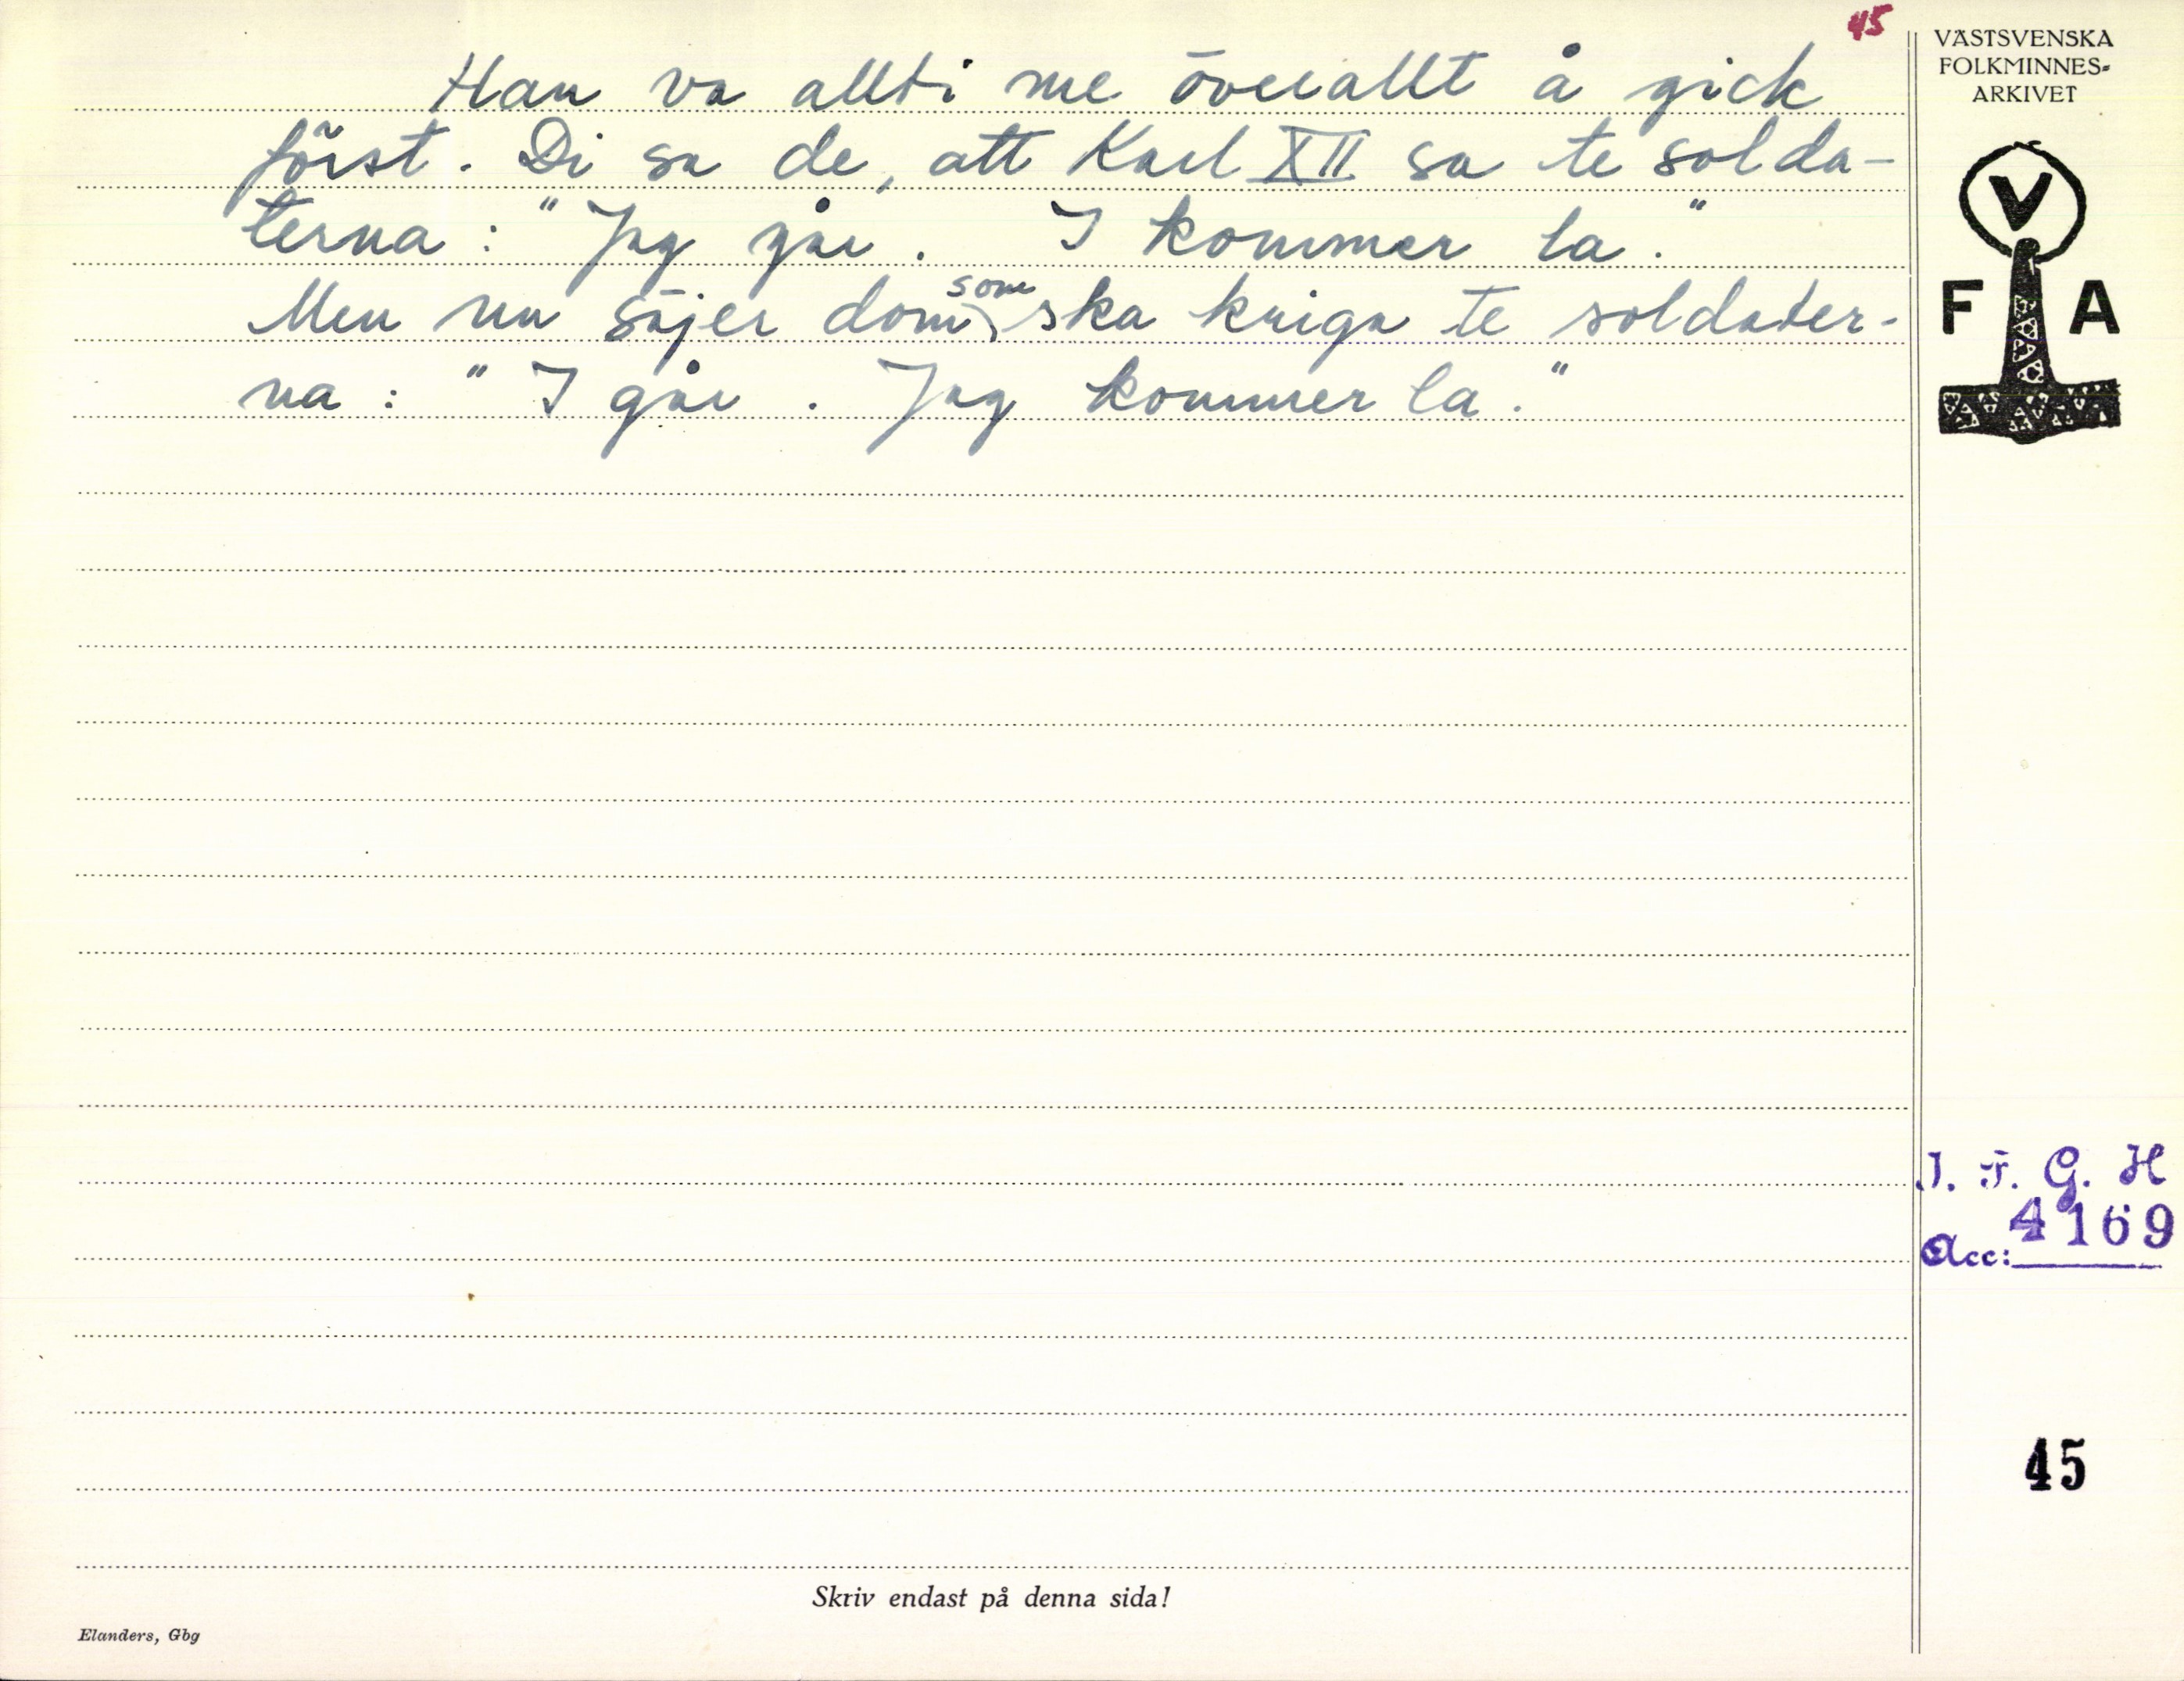 45
Han va allti me överallt å gick
först. Di sa de, att Karl XII sa te solda-
terna: "Jag går. I kommer la."
Men nu säjer dom som ska kriga te soldater-
na: "I går. Jag kommer la."
VÄSTSVENSKA
FOLKMINNES-
ARKIVET
V
F A
I. F. G. H
Acc: 4169
45
Skriv endast på denna sida!
Elanders, Gbg